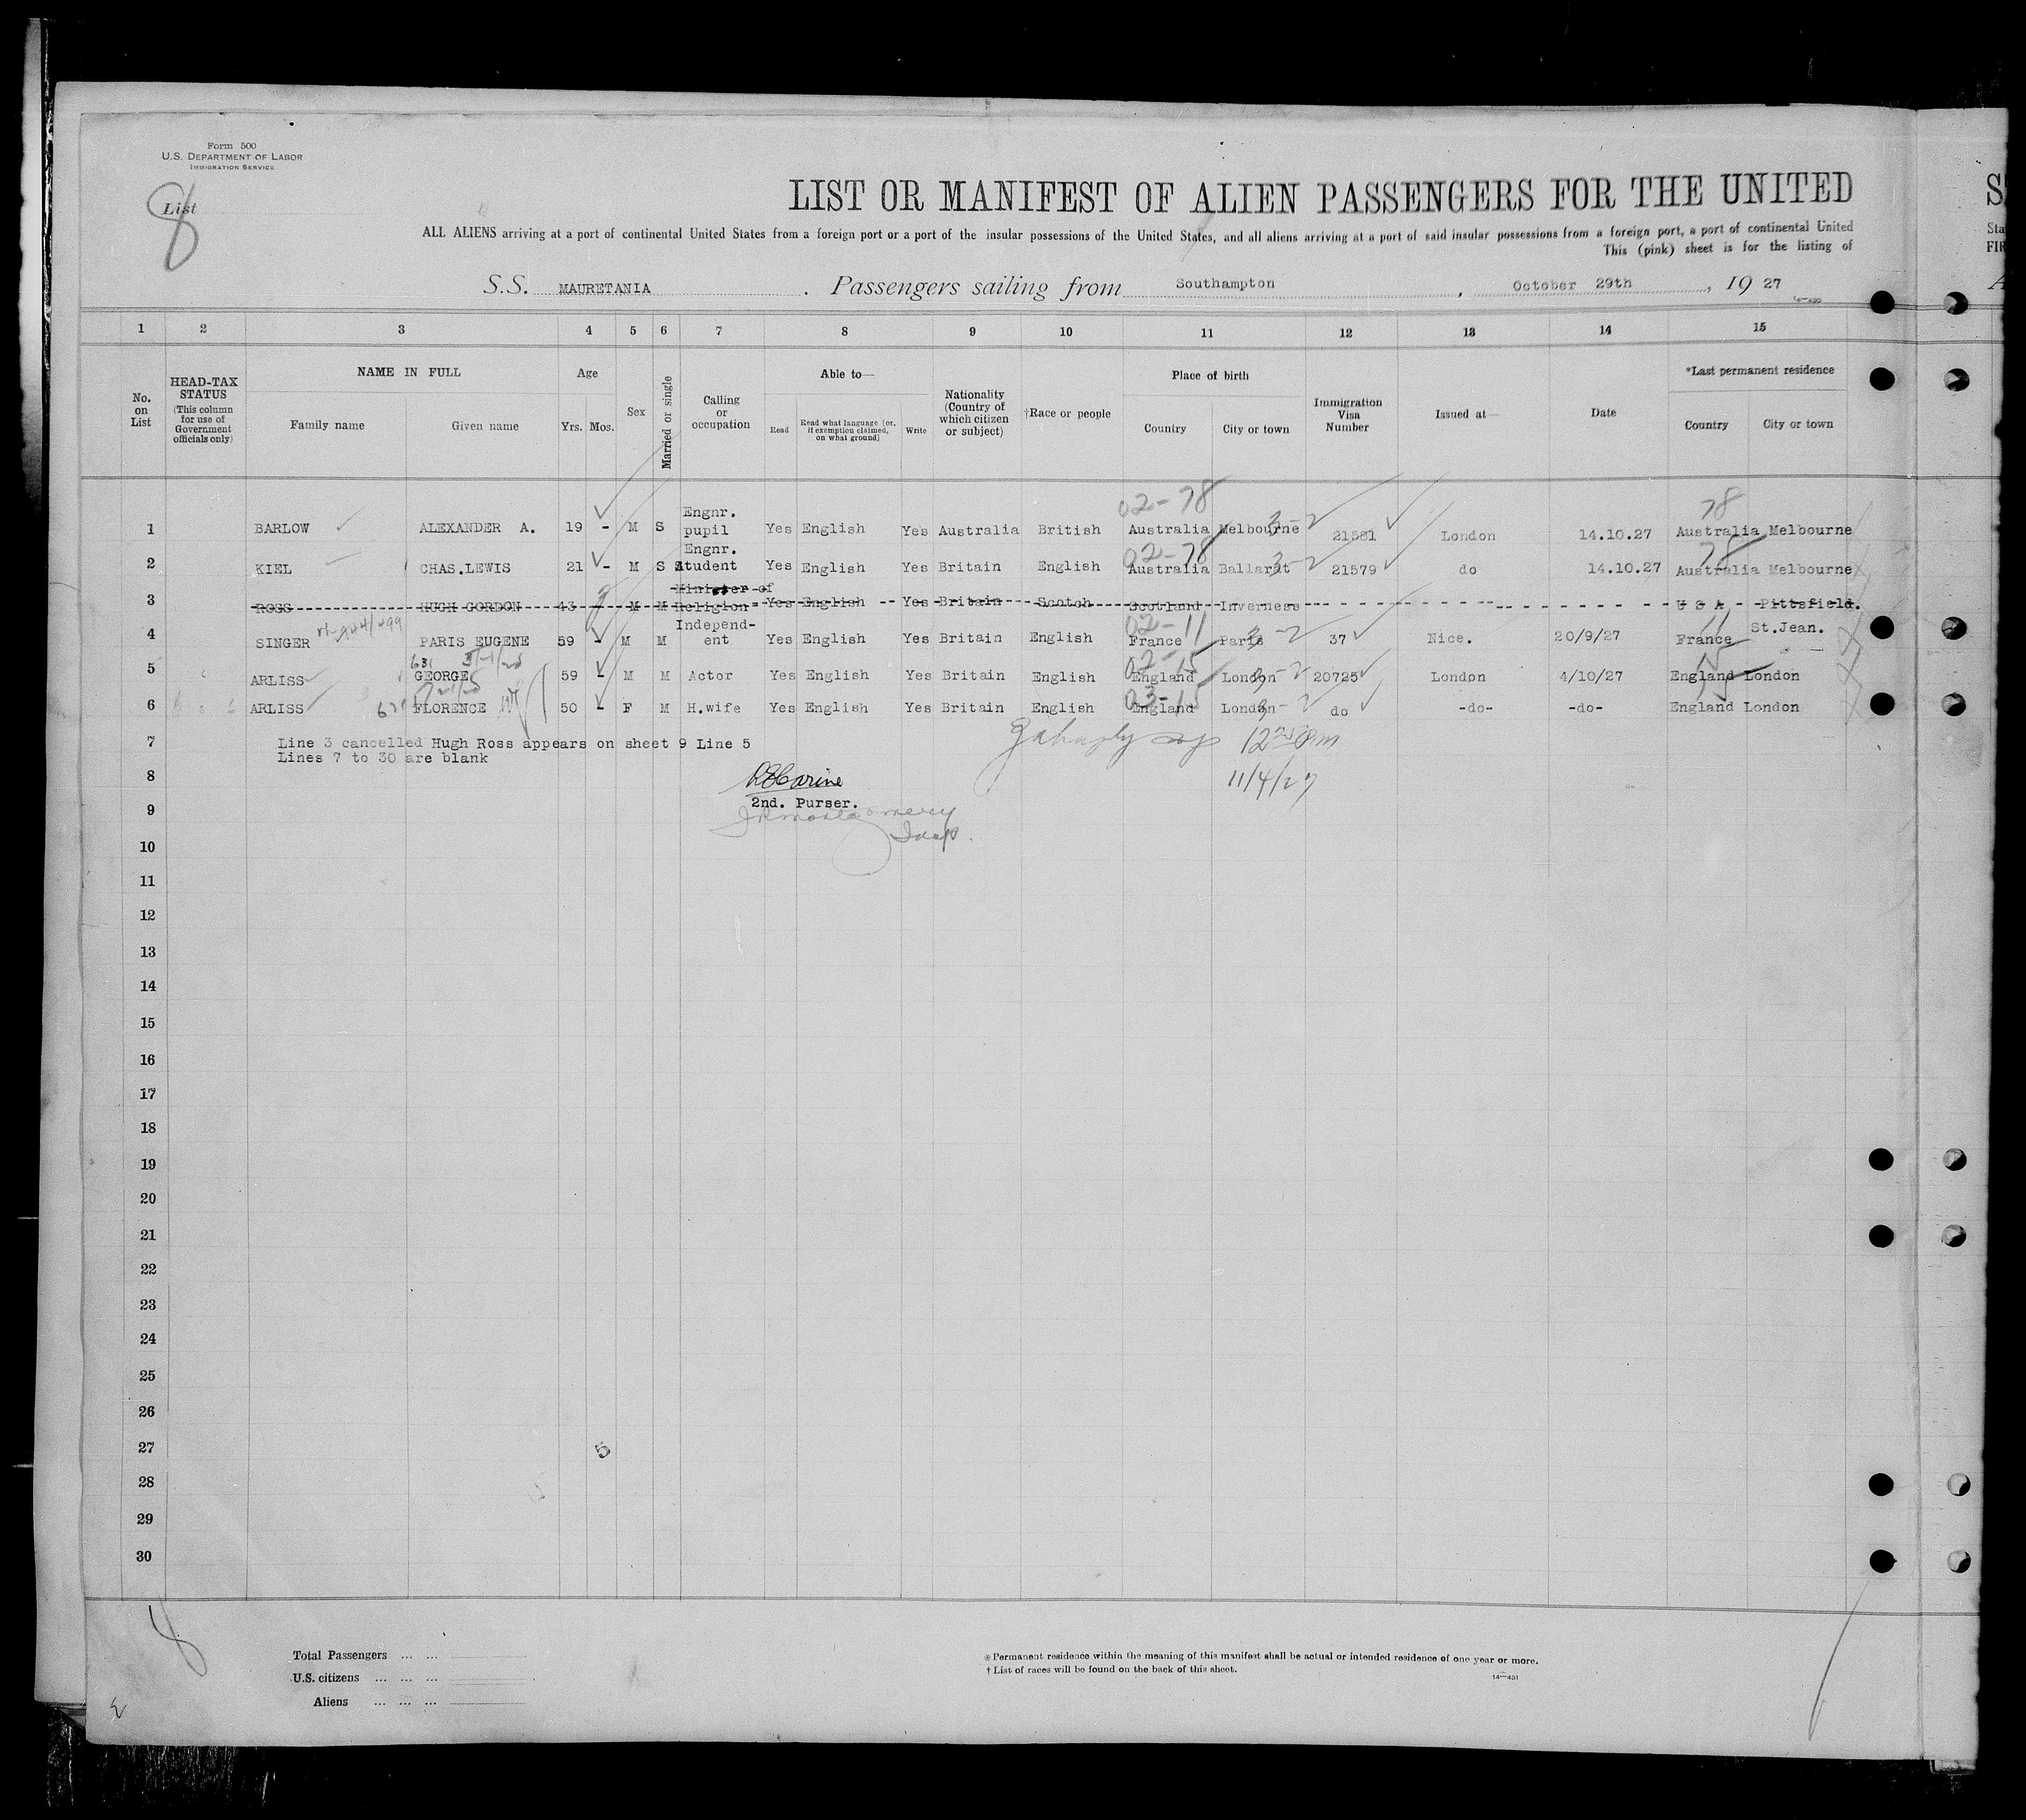 Form 500
U.S. DEPARTMENT OF LABOR
IMMIGRATION SERVICE
List 8
LIST OR MANIFEST OF ALIEN PASSENGERS FOR THE UNITED
ALL ALIENS arriving at a port of continental United States from a foreign port or a port of the insular possessions of the United States, and all aliens arriving at a port of said insular possessions from a foreign port, a port of continental United
This (pink) sheet is for the listing of
S.S. MAURETANIA. Passengers sailing from Southampton, October 29th, 19 27
1 2 3 4 5 6 7 8 9 10 11 12 13 14 15
No. on List
HEAD-TAX STATUS (This column for use of Government officials only)
NAME IN FULL Family name Given name
Age Yrs. Mos.
Sex
Married or single
Calling or occupation
Able to— Read Read what language [or, if exemption claimed, on what ground] Write
Nationality (Country of which citizen or subject)
†Race or people
Place of birth Country City or town
Immigration Visa Number
Issued at—
Date
*Last permanent residence Country City or town
02-78 78
1 BARLOW ALEXANDER A. 19 - M S Engnr. pupil Yes English Yes Australia British Australia Melbourne 3-2 21581 London 14.10.27 Australia Melbourne
02-78 78
2 KIEL CHAS.LEWIS 21 - M S Engnr. Student Yes English Yes Britain English Australia Ballarat 3-2 21579 do 14.10.27 Australia Melbourne
3 ROSS HUGH GORDON 43 M M Minister of Religion Yes English Yes Britain Scotch Scotland Inverness U S A Pittsfield.
02-11 11
4 SINGER PARIS EUGENE 59 - M M Independ-ent Yes English Yes Britain English France Paris 3-2 37 Nice. 20/9/27 France St.Jean.
02-15 15
5 ARLISS GEORGE 59 - M M Actor Yes English Yes Britain English England London 3-2 20725 London 4/10/27 England London
03-15 15
6 ARLISS FLORENCE 50 - F M H.wife Yes English Yes Britain English England London 3-2 do -do- -do- England London
7 Line 3 cancelled Hugh Ross appears on sheet 9 Line 5
Lines 7 to 30 are blank
11/4/27
8
2nd. Purser.
9
10
11
12
13
14
15
16
17
18
19
20
21
22
23
24
25
26
27 5
28
29
30
8
Total Passengers ... ...
U.S. citizens ... ... ...
Aliens ... ... ...
* Permanent residence within the meaning of this manifest shall be actual or intended residence of one year or more.
† List of races will be found on the back of this sheet.
14—431